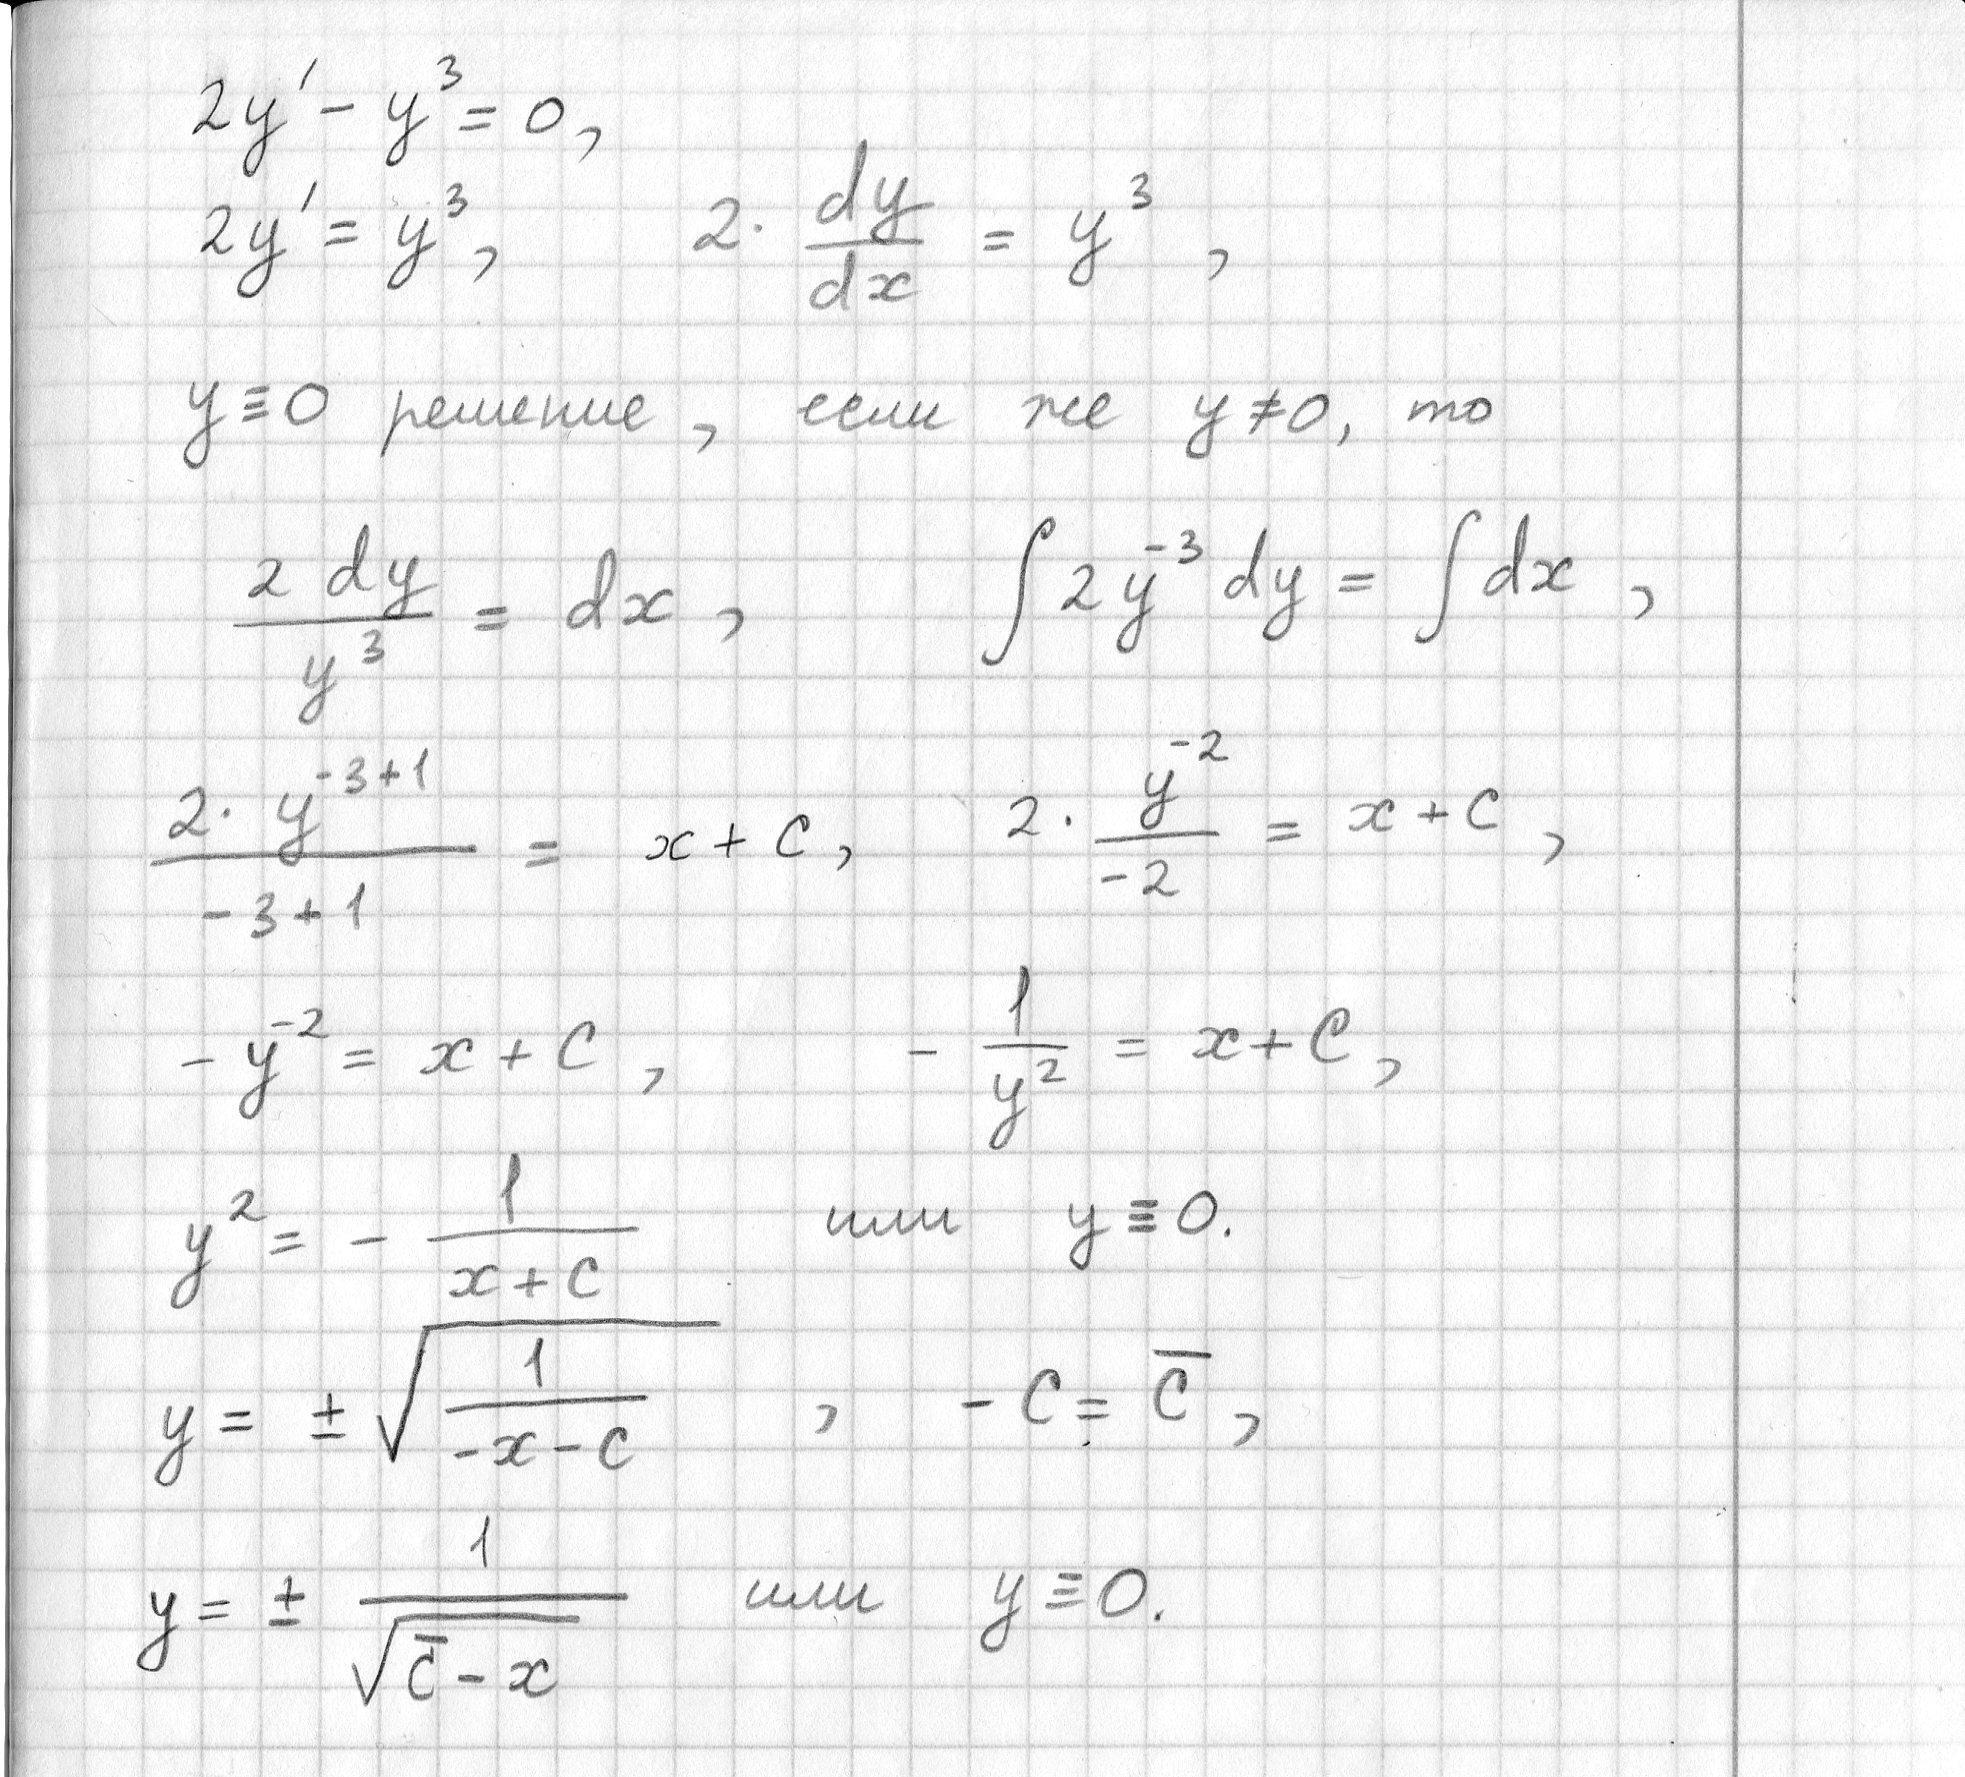 2y' - y³ = 0,
2y' = y³, 2 · dy/dx = y³,
y ≡ 0 решение, если же y ≠ 0, то
2 dy / y³ = dx, ∫ 2y⁻³ dy = ∫ dx,
2 · y⁻³⁺¹ / (-3+1) = x + C, 2 · y⁻² / -2 = x + C,
- y⁻² = x + C, - 1/y² = x + C,
y² = - 1/(x + C) или y ≡ 0.
y = ± √(1/(-x - C)), - C = C̅,
y = ± 1/√(C̅ - x) или y ≡ 0.